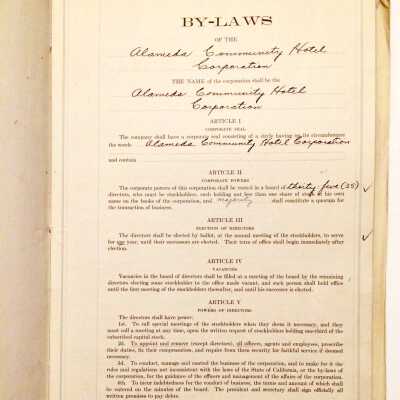 BY-LAWS
OF THE
Alameda Community Hotel
Corporation
THE NAME of the corporation shall be the
Alameda Community Hotel
Corporation
ARTICLE I
CORPORATE SEAL
The company shall have a corporate seal consisting of a circle having on its circumference
the words Alameda Community Hotel Corporation
and contain
ARTICLE II
CORPORATE POWERS
The corporate powers of this corporation shall be vested in a board of thirty five (35)
directors, who must be stockholders, each holding not less than one share of stock in his own
name on the books of the corporation, and majority shall constitute a quorum for
the transaction of business.
ARTICLE III
ELECTION OF DIRECTORS
The directors shall be elected by ballot, at the annual meeting of the stockholders, to serve
for one year, until their successors are elected. Their term of office shall begin immediately after
election.
ARTICLE IV
VACANCIES
Vacancies in the board of directors shall be filled at a meeting of the board by the remaining
directors electing some stockholder to the office made vacant, and such person shall hold office
until the first meeting of the stockholders thereafter, and until his successor is elected.
ARTICLE V
POWERS OF DIRECTORS
The directors shall have power:
1st. To call special meetings of the stockholders when they deem it necessary, and they
must call a meeting at any time, upon the written request of stockholders holding one-third of the
subscribed capital stock.
2d. To appoint and remove (except directors), all officers, agents and employees, prescribe
their duties, fix their compensation, and require from them security for faithful service if deemed
necessary.
3d. To conduct, manage and control the business of the corporation, and to make for it the
rules and regulations not inconsistent with the laws of the State of California, or the by-laws of
the corporation, for the guidance of the officers and management of the affairs of the corporation.
4th. To incur indebtedness for the conduct of business, the terms and amount of which shall
be entered on the minutes of the board. The president and secretary shall sign officially all
written promises to pay debts.